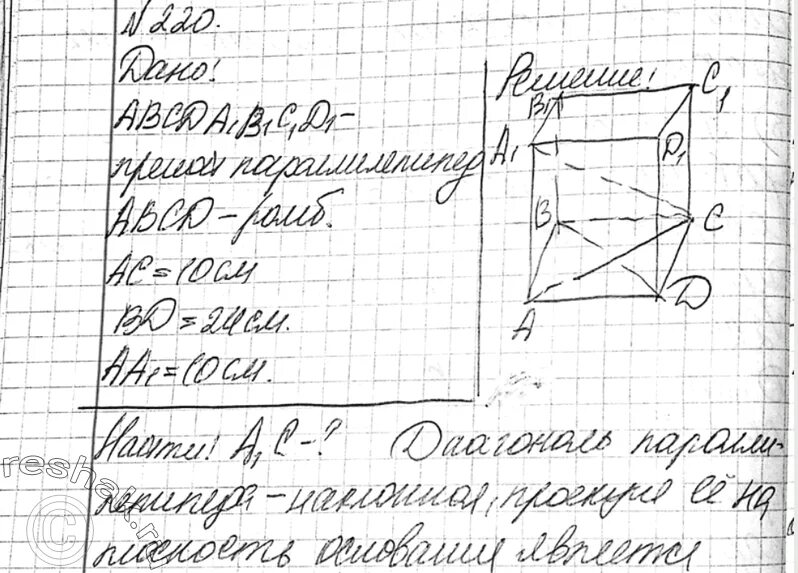 №220.
Дано:
ABCDA₁B₁C₁D₁-
прямой параллелепипед
ABCD-ромб.
AC=10см
BD=24см.
AA₁=10см.
Решение:
B₁
C₁
A₁
D₁
B
C
A
D
Найти: A₁C-? Диагональ паралле-
лепипеда-наклонная, проекция её на
плоскость основания является
reshak.ru